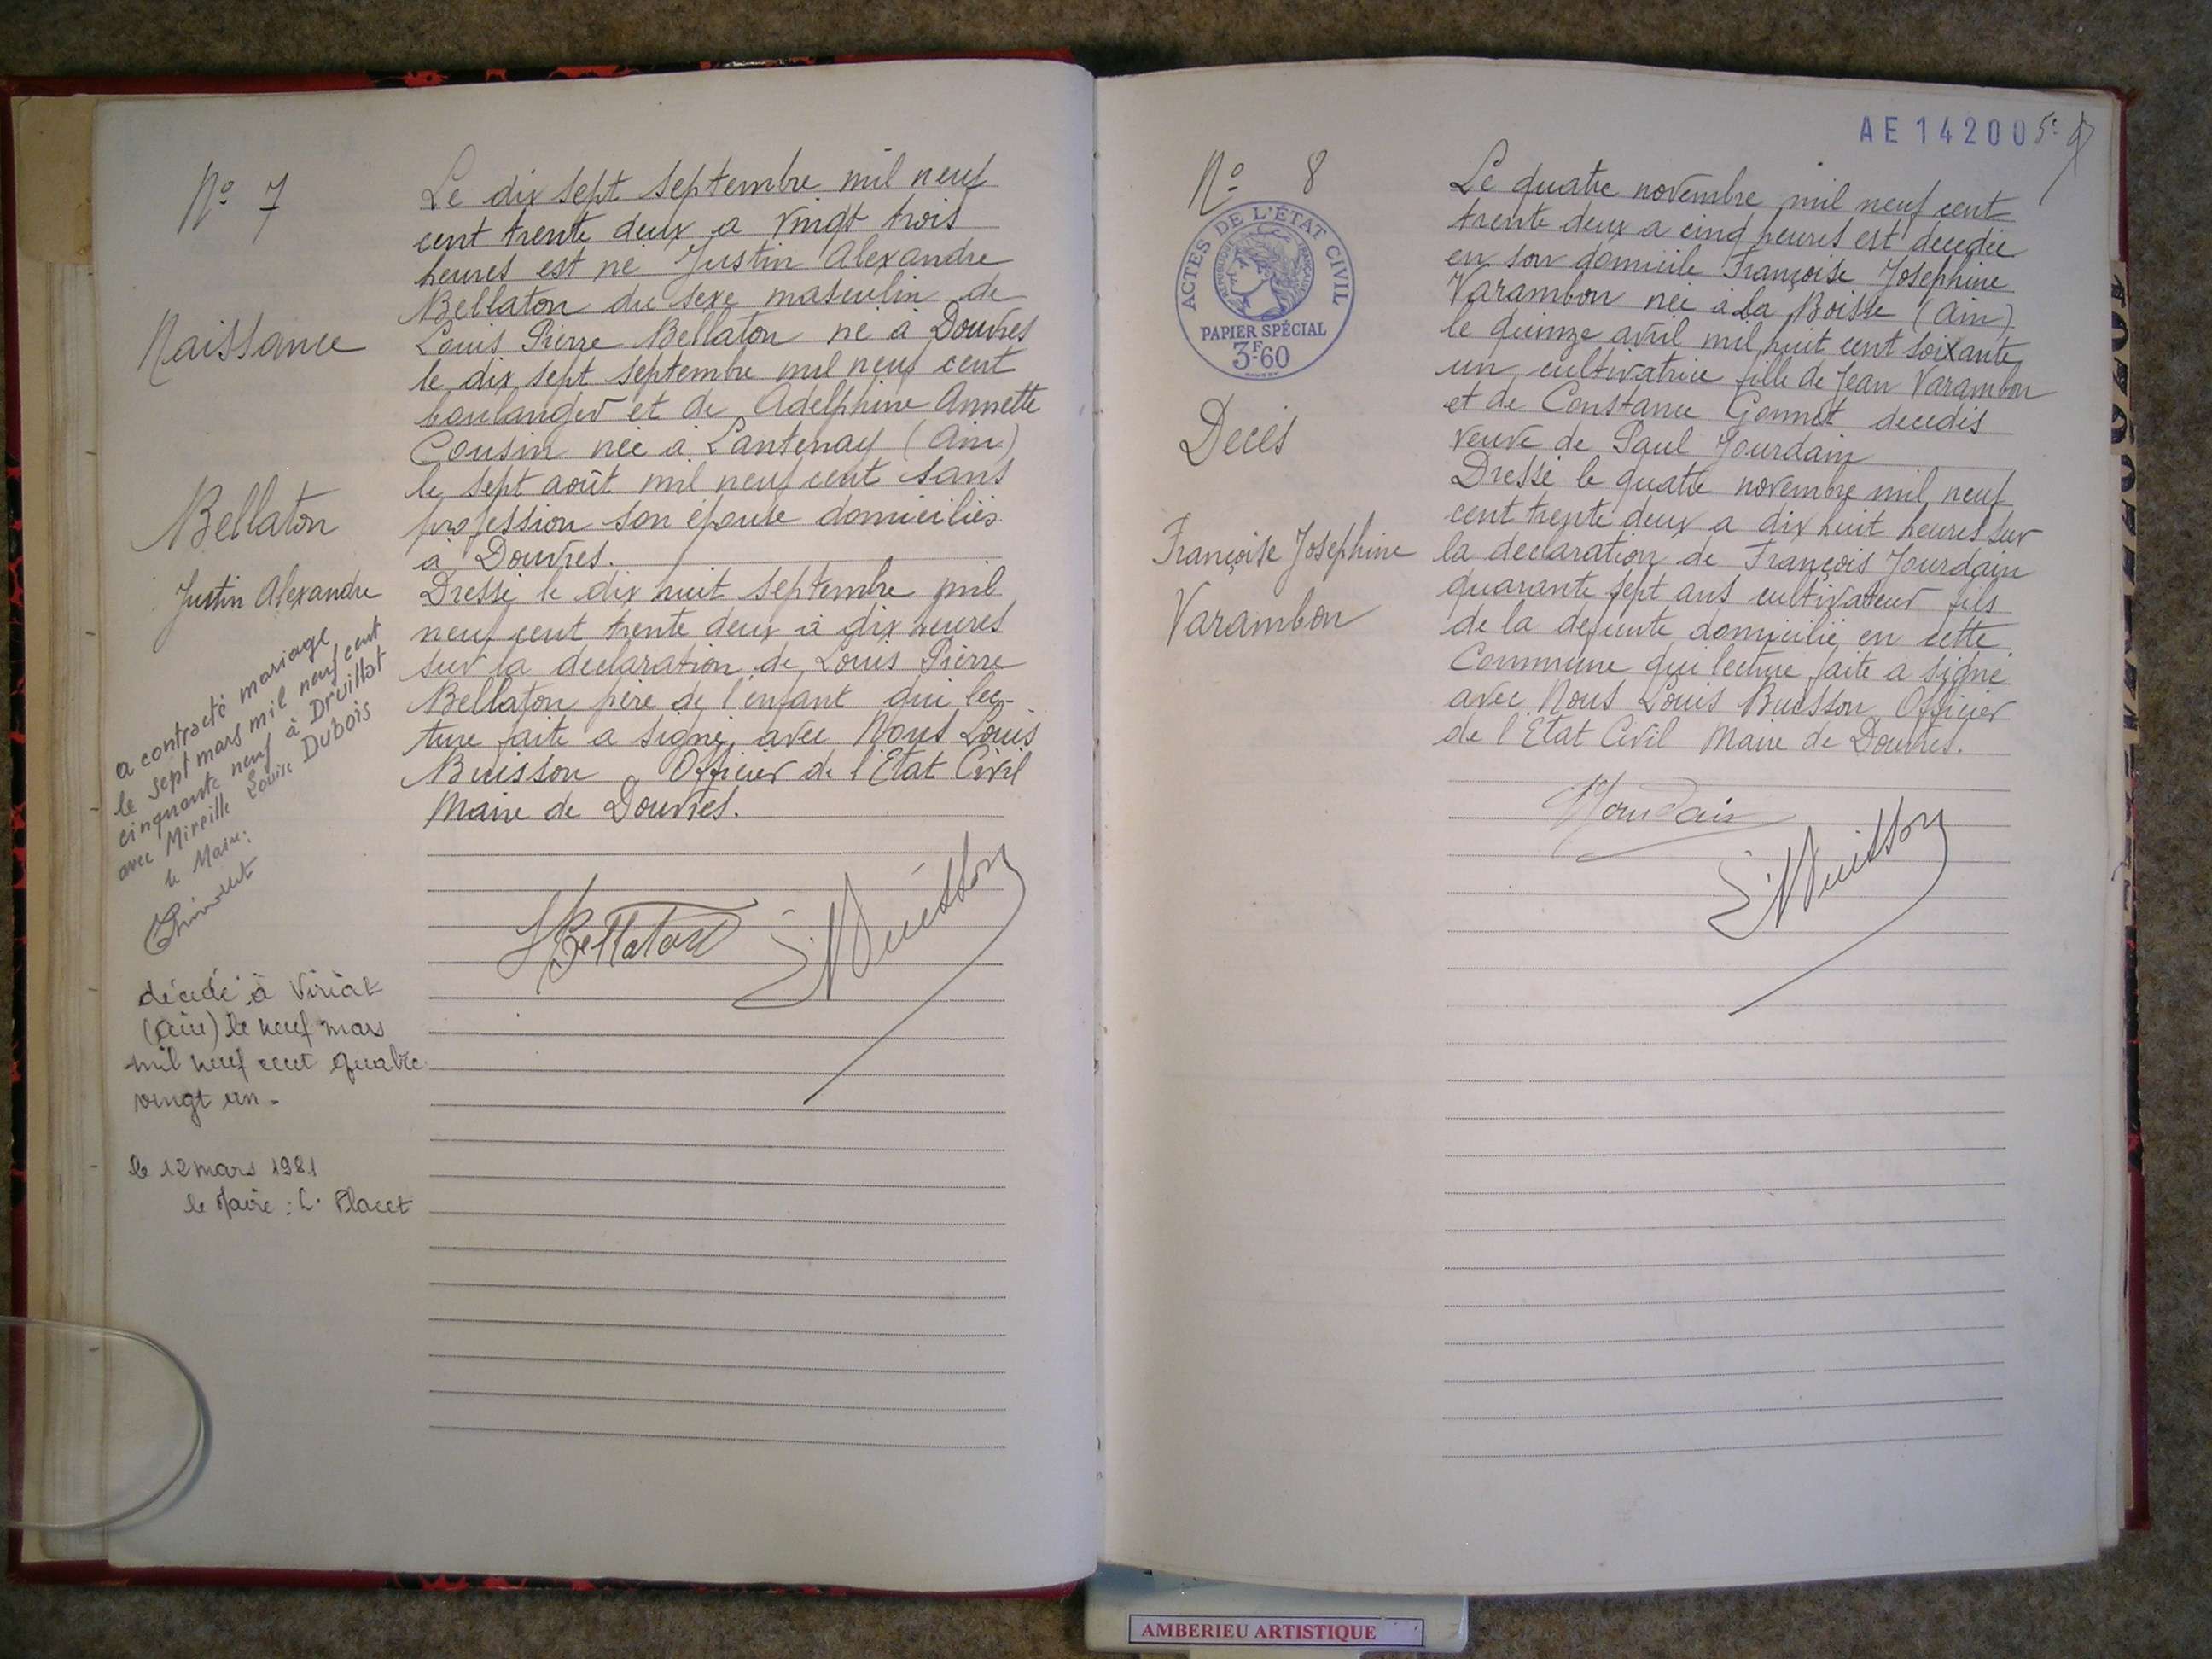 N° 7
Naissance
Bellaton
Justin Alexandre
a contracté mariage
le sept mars mil neuf cent
cinquante neuf à Druillat
avec Mireille Louise Dubois
le Maire:
décédé à Viriat
(Ain) le neuf mars
mil neuf cent quatre
vingt un.
le 12 mars 1981
le Maire : L. Placet
Le dix sept septembre mil neuf
cent trente deux a vingt trois
heures est né Justin Alexandre
Bellaton du sexe masculin de
Louis Pierre Bellaton né à Douvres
le dix sept septembre mil neuf cent
boulanger et de Adelphine Annette
Cousin née à Lantenay (Ain)
le sept août mil neuf cent sans
profession son épouse domiciliés
à Douvres.
Dressé le dix huit septembre mil
neuf cent trente deux à dix heures
sur la declaration de Louis Pierre
Bellaton père de l'enfant qui lec-
ture faite a signé avec Nous Louis
Buisson Officier de l'Etat Civil
Maire de Douvres.
LBellaton
LBuisson
AE 14200 5e
N° 8
ACTES DE L'ÉTAT CIVIL
RÉPUBLIQUE FRANÇAISE
PAPIER SPÉCIAL
3F60
Decès
Françoise Josephine
Varambon
Le quatre novembre mil neuf cent
trente deux a cinq heures est decedée
en son domicile Françoise Josephine
Varambon née à la Boisse (Ain)
le quinze avril mil huit cent soixante
un cultivatrice fille de Jean Varambon
et de Constance Gonnet decedés
veuve de Paul Jourdain
Dressé le quatre novembre mil neuf
cent trente deux a dix huit heures sur
la declaration de François Jourdain
quarante sept ans cultivateur fils
de la defunte domicilié en cette
Commune qui lecture faite a signé
avec Nous Louis Buisson Officier
de l'Etat Civil Maire de Douvres.
Jourdain
LBuisson
AMBERIEU ARTISTIQUE